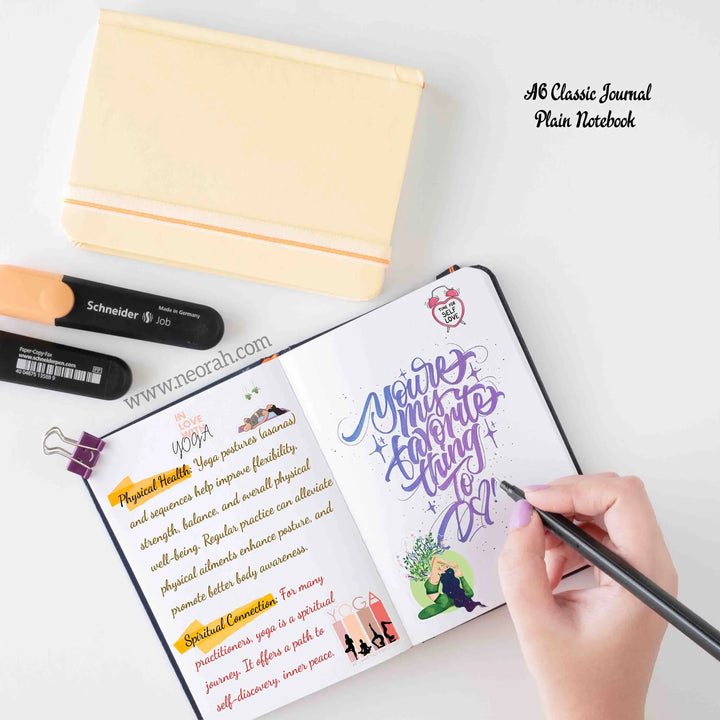 A6 Classic Journal
Plain Notebook
Schneider
Made in Germany
Job
Paper-Copy-Fax
www.schneiderpen.com
www.neorah.com
IN
LOVE
WITH
YOGA
Physical Health: Yoga postures (asanas)
and sequences help improve flexibility,
strength, balance, and overall physical
well-being. Regular practice can alleviate
physical ailments enhance posture, and
promote better body awareness.
Spiritual Connection: For many
practitioners, yoga is a spiritual
journey. It offers a path to
self-discovery, inner peace.
YOGA
TIME FOR
SELF
LOVE
You're
my
favorite
thing
To
Do!